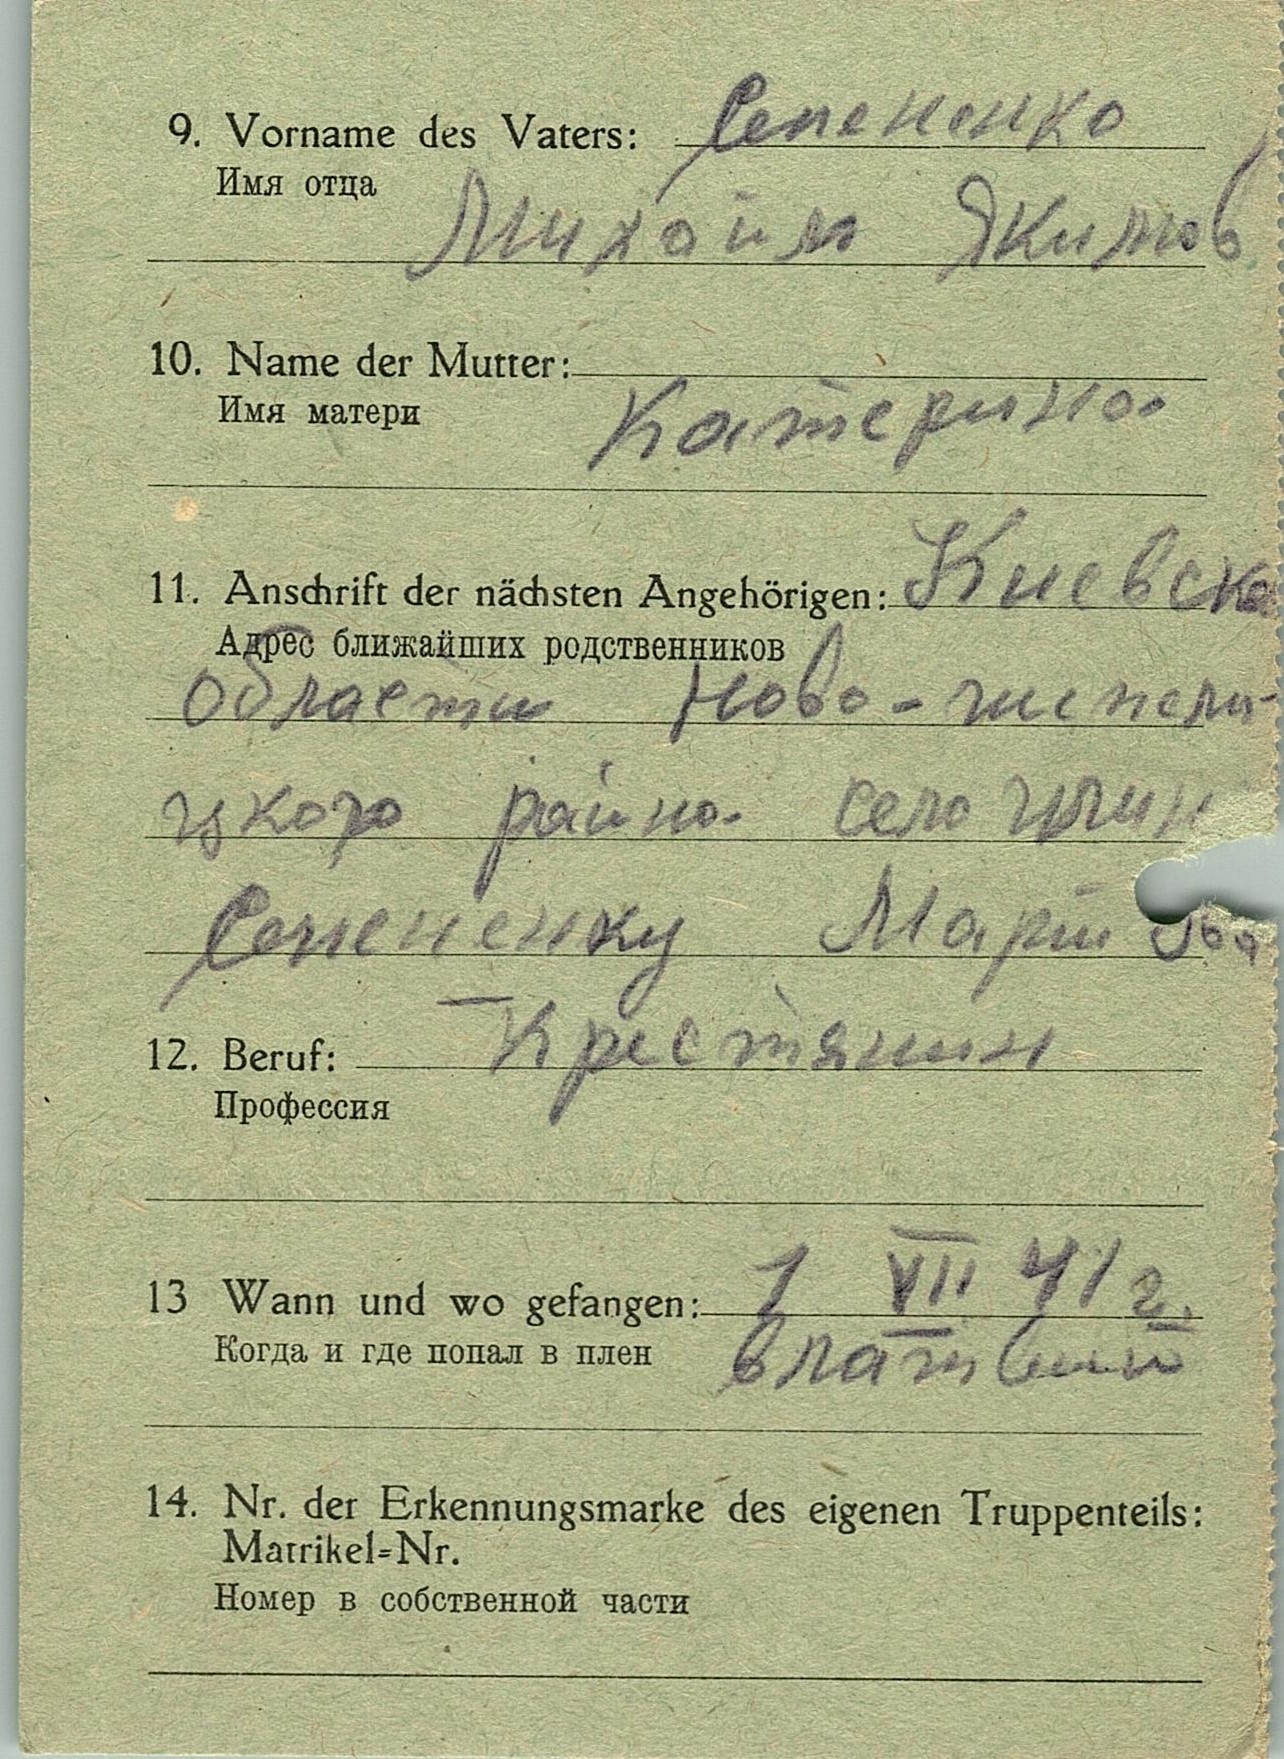 9. Vorname des Vaters: Семененко
Имя отца
Михаил Якимов
10. Name der Mutter:
Имя матери Катерина
11. Anschrift der nächsten Angehörigen: Киевско
Адрес ближайших родственников
области Ново-
цкого район село
Семененку
12. Beruf: Крестянин
Профессия
13 Wann und wo gefangen: 1 VII 41 г.
Когда и где попал в плен влатвии
14. Nr. der Erkennungsmarke des eigenen Truppenteils:
Matrikel=Nr.
Номер в собственной части